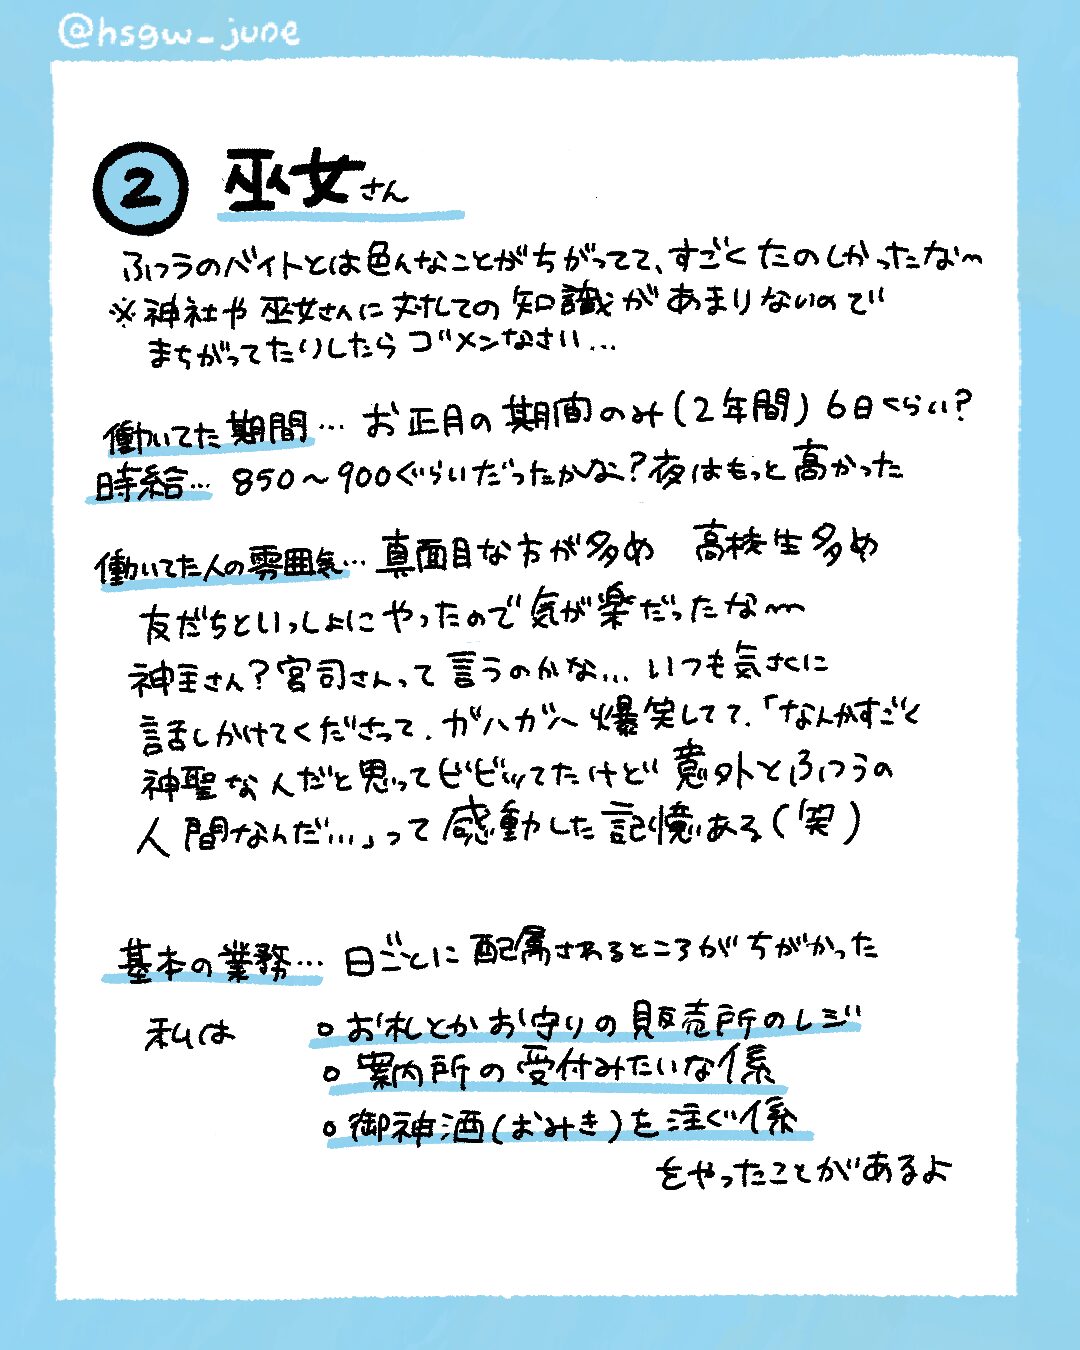 @hsgw_june
② 巫女さん
ふつうのバイトとは色んなことがちがってて、すごくたのしかったな〜
※神社や巫女さんに対しての知識があまりないので
まちがってたりしたらゴメンなさい…
働いてた期間… お正月の期間のみ(2年間) 6日くらい?
時給… 850〜900ぐらいだったかな?夜はもっと高かった
働いてた人の雰囲気… 真面目な方が多め 高校生多め
友だちといっしょにやったので気が楽だったな〜
神主さん?宮司さんって言うのかな… いつも気さくに
話しかけてくださって、ガハガハ爆笑してて、「なんかすごく
神聖な人だと思ってビビッてたけど意外とふつうの
人間なんだ…」って感動した記憶ある(笑)
基本の業務… 日ごとに配属されるところがちがかった
私は ○お札とかお守りの販売所のレジ
○案内所の受付みたいな係
○御神酒(おみき)を注ぐ係
をやったことがあるよ